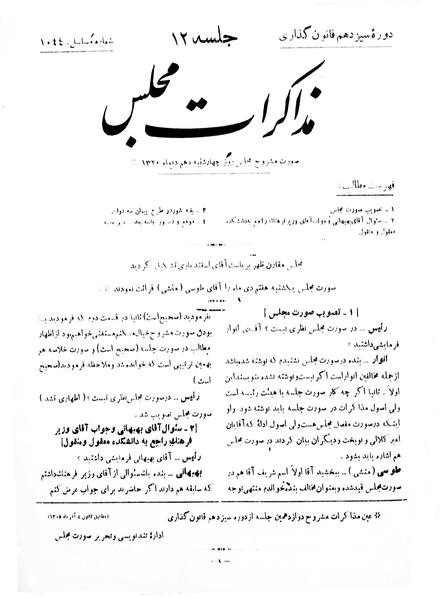 دورهٔ سیزدهم قانون گذاری
جلسه ۱۲
شماره مسلسل: ۱۰۴۴
مذاکرات مجلس
صورت مشروح مجلس روز چهارشنبه دهم دیماه ۱۳۲۰
فهرست مطالب:
۱ - تصویب صورت مجلس
۲ - سئوال آقای بهبهانی و جواب آقای وزیر فرهنگ راجع به دانشکده
معقول و منقول
۳ - بقیه شور در طرح پیمان سه دولت
۴ - موقع و دستور جلسه بعد - ختم جلسه
مجلس مقارن ظهر بریاست آقای اسفندیاری تشکیل گردید
صورت مجلس یکشنبه هفتم دی ماه را آقای طوسی (منشی) قرائت نمودند
[ ۱ - تصویب صورت مجلس ]
رئیس .. در صورت مجلس نظری نیست؟ آقای انوار
فرمایشی داشتید؟
انوار .. بنده در صورت مجلس نشنیدم که نوشته شده باشد
از جمله مخالفین انوار است اگر نیست و نوشته نشده بنویسند این
اولا ثانیا اگر چه کار صورت جلسه با هیئت رئیسه است
ولی اصول مذاکرات در صورت جلسه باید نوشته شود ولو
اینکه در صورت مفصل مجلس هست ولی اصول ادلهٔ که آقایان
امیر کلالی و نوبخت و دیگران بیان کردند در صورت مجلس
هم اشاره باید بشود.
طوسی (منشی) .. ببخشید آقا اولا اسم شریف آقا هم در
صورت مجلس قید شده و بعنوان مخالف بنده خواندم منتهی توجه
نفرمودید (صحیح است) ثانیا در قسمت دوم که فرمودید با
بودن صورت مشروح خیال میکنم مستغنی خواهیم بود از اظهار
مطالب در صورت جلسه (صحیح است) و صورت خلاصه هم
بهمین ترتیبی است که خوانده شد و ملاحظه فرمودید (صحیح
است)
رئیس .. در صورت مجلس نظری نیست؟ (اظهاری نشد)
صورت مجلس تصویب شد.
[۲- سئوال آقای بهبهانی و جواب آقای وزیر
فرهنگ راجع به دانشکده معقول و منقول]
رئیس .. آقای بهبهانی فرمایشی داشتید؟
بهبهانی .. بنده یک سئوالی از آقای وزیر فرهنگ داشتم
که سابقه هم دارند اگر حاضرند برای جواب عرض کنم
عین مذاکرات مشروح دوازدهمین جلسه از دوره سیزدهم قانون گذاری
(مطابق قانون ۸ آذر ماه ۱۳۰۵)
ادارهٔ تند نویسی و تحریر صورت مجلس
- ۱ -